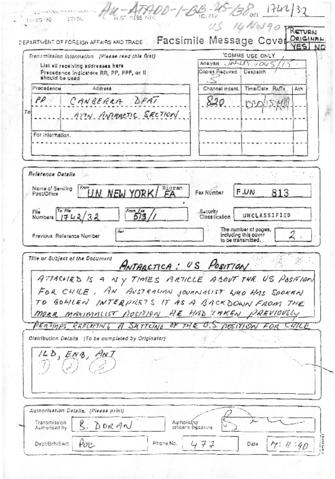 AU-ATADD-1-BB-
1742/32
US
RETURN
ORIGINAL
YES NO
DEPARTMENT OF FOREIGN AFFAIRS AND TRADE
Facsimile Message Cover
Transmission Information (Please read first)
List all receiving addresses here
Precedence Indicators RR, PP, PPP, or II
should be used.
COMMS USE ONLY
Copies Required
Despatch
Precedence
Address
Channel
Time/Date
PP
CANBERRA DFAT
820
To
ATTN. ANTARCTIC SECTION
For information.
Reference Details
Name of Sending
Post/Office
From
U.N. NEW YORK/
FA
Fax Number
F.UN 813
File
Numbers
To
1742/32
From
513/1
Security
Classification
UNCLASSIFIED
Previous Reference Number
The number of pages,
including this cover
to be transmitted.
2
Title or Subject of the Document
ANTARCTICA: US POSITION
ATTACHED IS A NY TIMES ARTICLE ABOUT THE US POSITION
FOR CHILE. AN AUSTRALIAN JOURNALIST WHO HAS SPOKEN
TO BOHLEN INTERPRETS IT AS A BACKDOWN FROM THE
MORE MAXIMALIST POSITION HE HAD TAKEN PREVIOUSLY
PERHAPS REFLECTING A SETTLING OF THE U.S. POSITION FOR CHILE
Distribution Details (To be completed by Originator)
ILD, ENB, ANT
1 2 3
Authorisation Details. (Please print)
Transmission
Authorised by
B. DORAN
Authorising
officers Signature
Dept/Brch/Sect
POL
Phone No.
477
Date
7.11.90